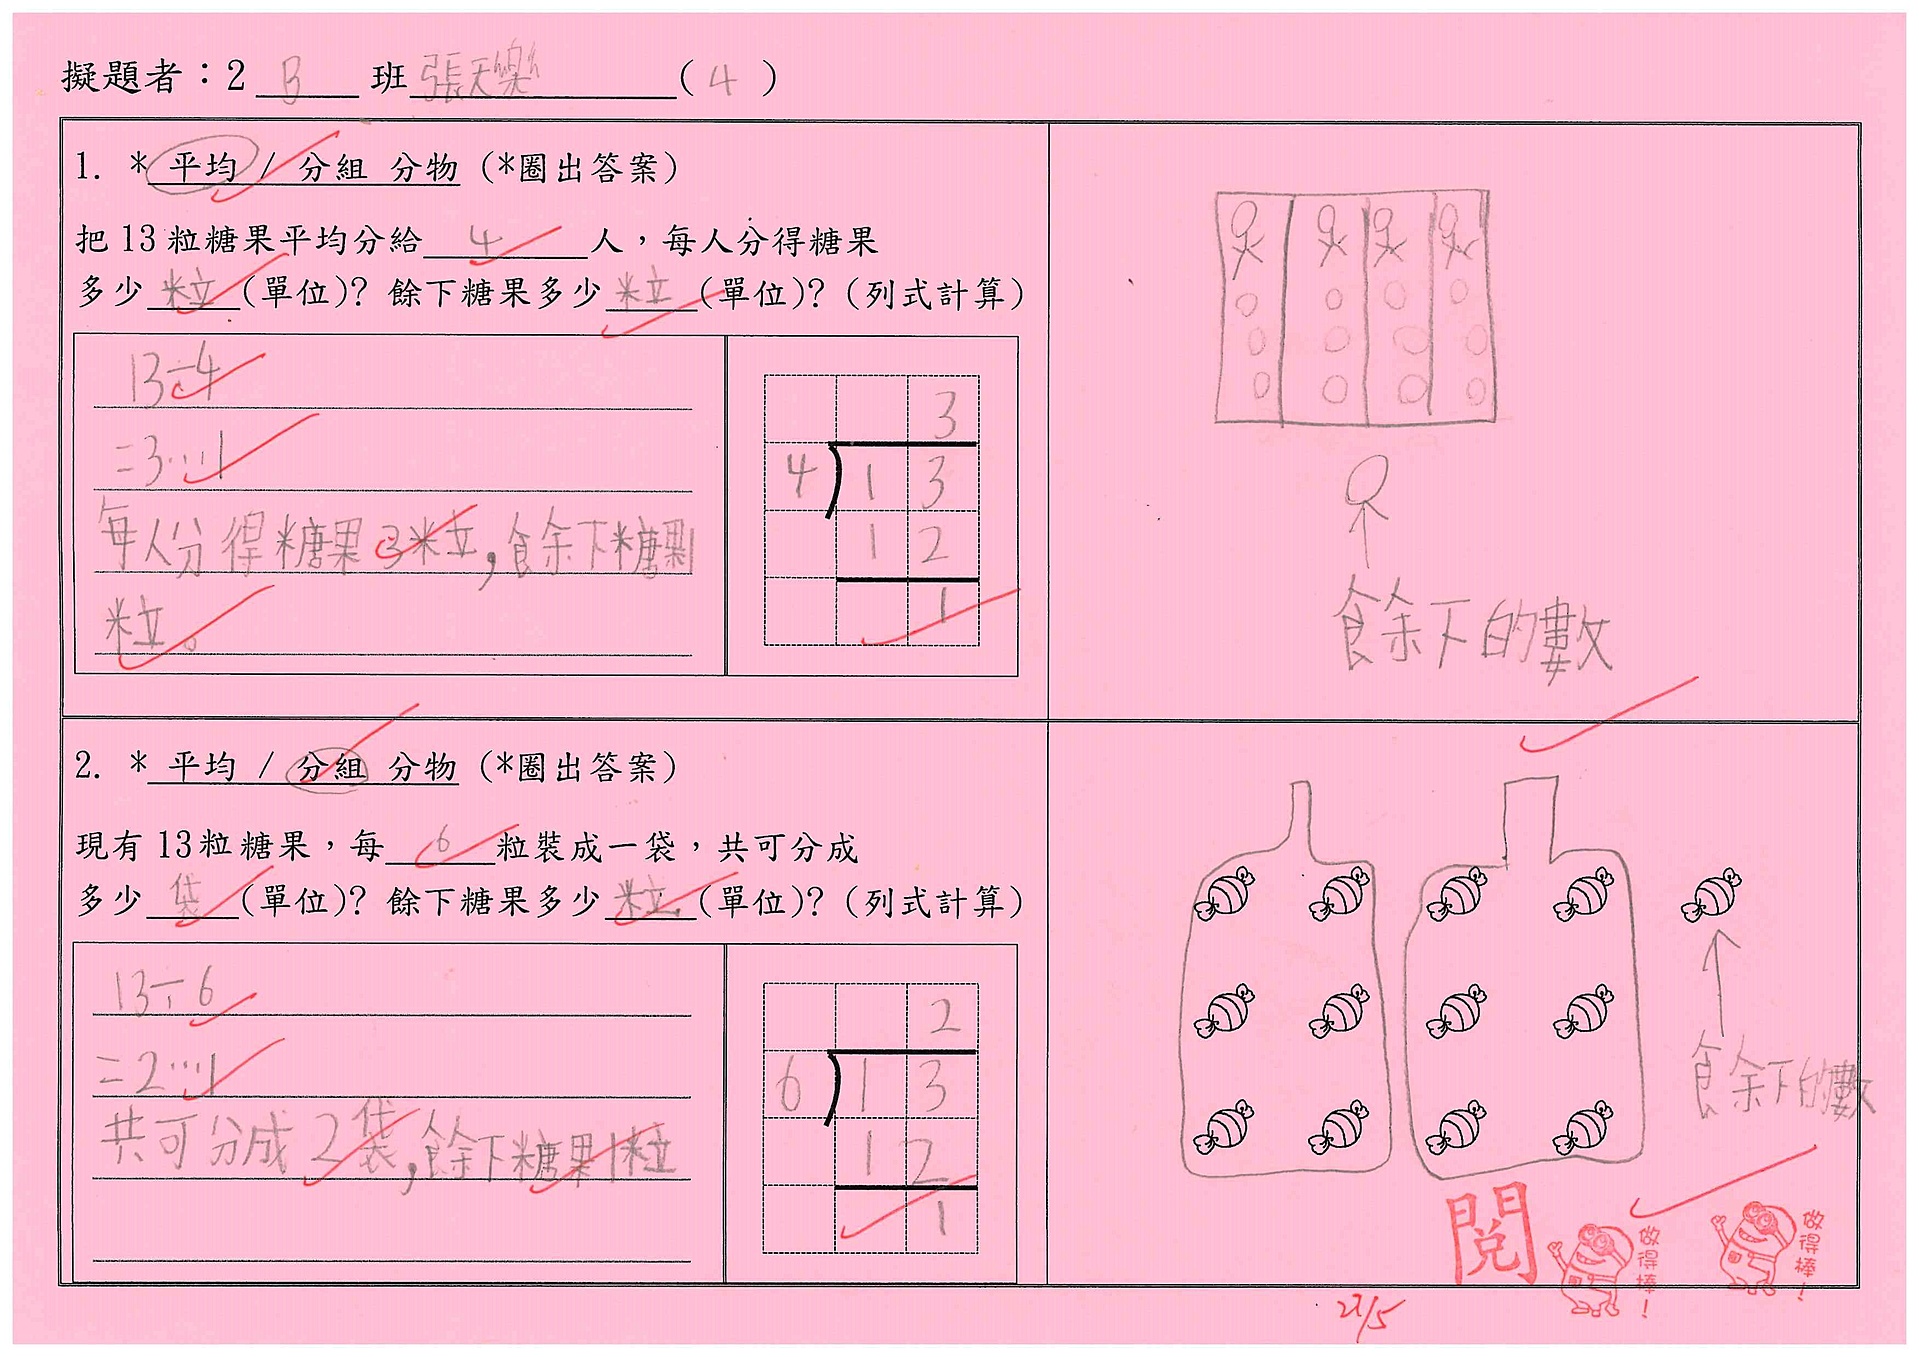 擬題者：2 B 班 張天樂 ( 4 )
1. * 平均 / 分組 分物 (*圈出答案)
把 13 粒糖果平均分給 4 人，每人分得糖果
多少 粒 (單位)? 餘下糖果多少 粒 (單位)? (列式計算)
13÷4
=3…1
每人分得糖果3粒，餘下糖果1
粒。
3
4 1 3
1 2
1
餘下的數
2. * 平均 / 分組 分物 (*圈出答案)
現有 13 粒糖果，每 6 粒裝成一袋，共可分成
多少 袋 (單位)? 餘下糖果多少 粒 (單位)? (列式計算)
13÷6
=2…1
共可分成2袋，餘下糖果1粒
2
6 1 3
1 2
1
餘下的數
閱
做得棒！
做得棒！